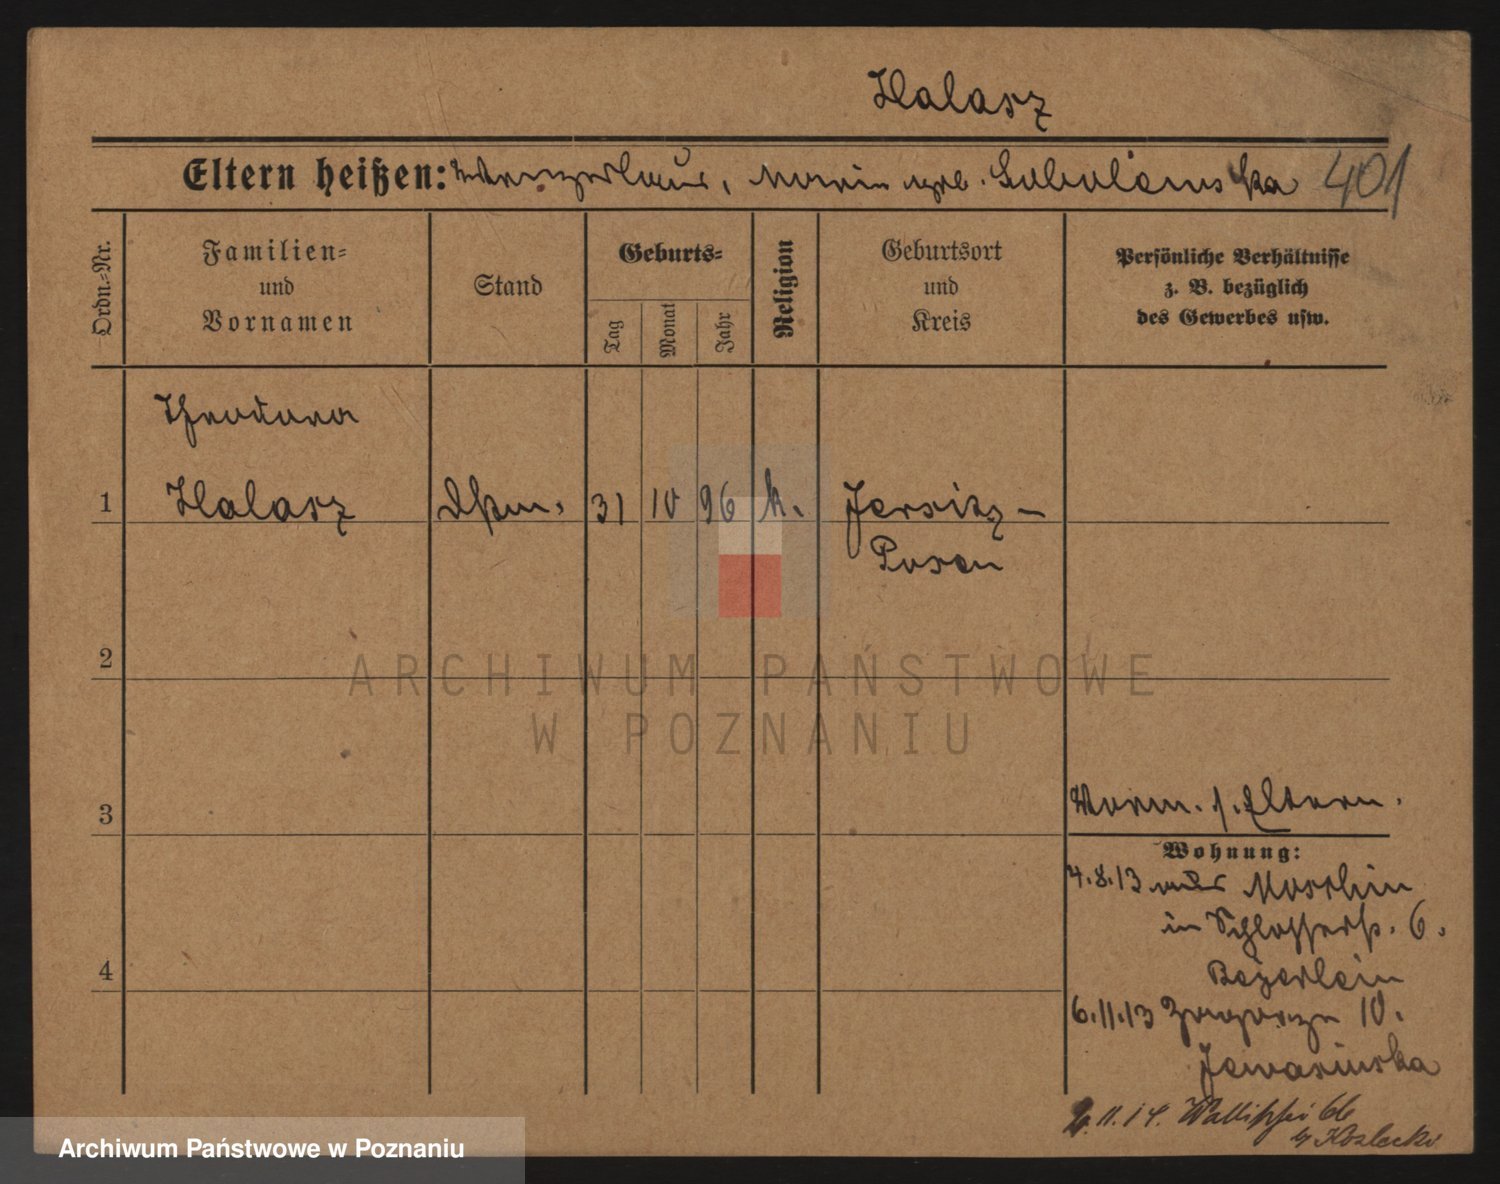 Halasz
Eltern heißen: Marie geb. 401
Ordn.-Nr.
Familien-
und
Vornamen
Stand
Geburts-
Tag
Monat
Jahr
Religion
Geburtsort
und
Kreis
Persönliche Verhältnisse
z. B. bezüglich
des Gewerbes usw.
Theodora
1 Halasz 31 10 96 k. Jersitz-
Posen
2
3
Eltern.
Wohnung:
4.8.13 aus Moschin
in Schlosserstr. 6.
Beyerlein
6.11.13 Zagorze 10.
11.14. Wallischei 66
ARCHIWUM PAŃSTWOWE
W POZNANIU
4
Archiwum Państwowe w Poznaniu